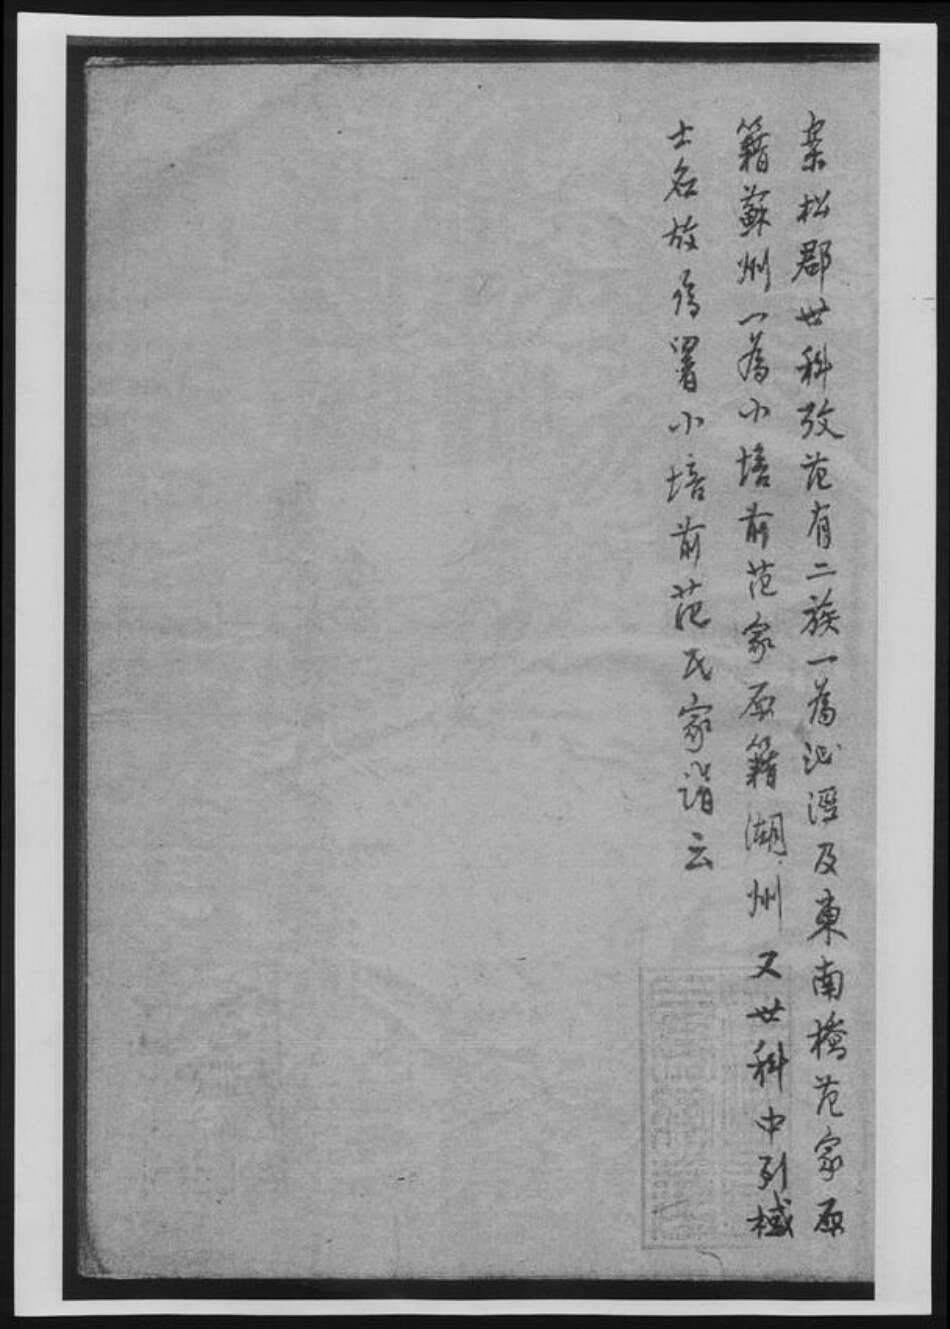 案松郡世科攷范有二族一為沘涇及東南橋范家原
籍蘇州一為小培前范家原籍湖州又世科中列棫
士名故為署小培前范氏家譜云